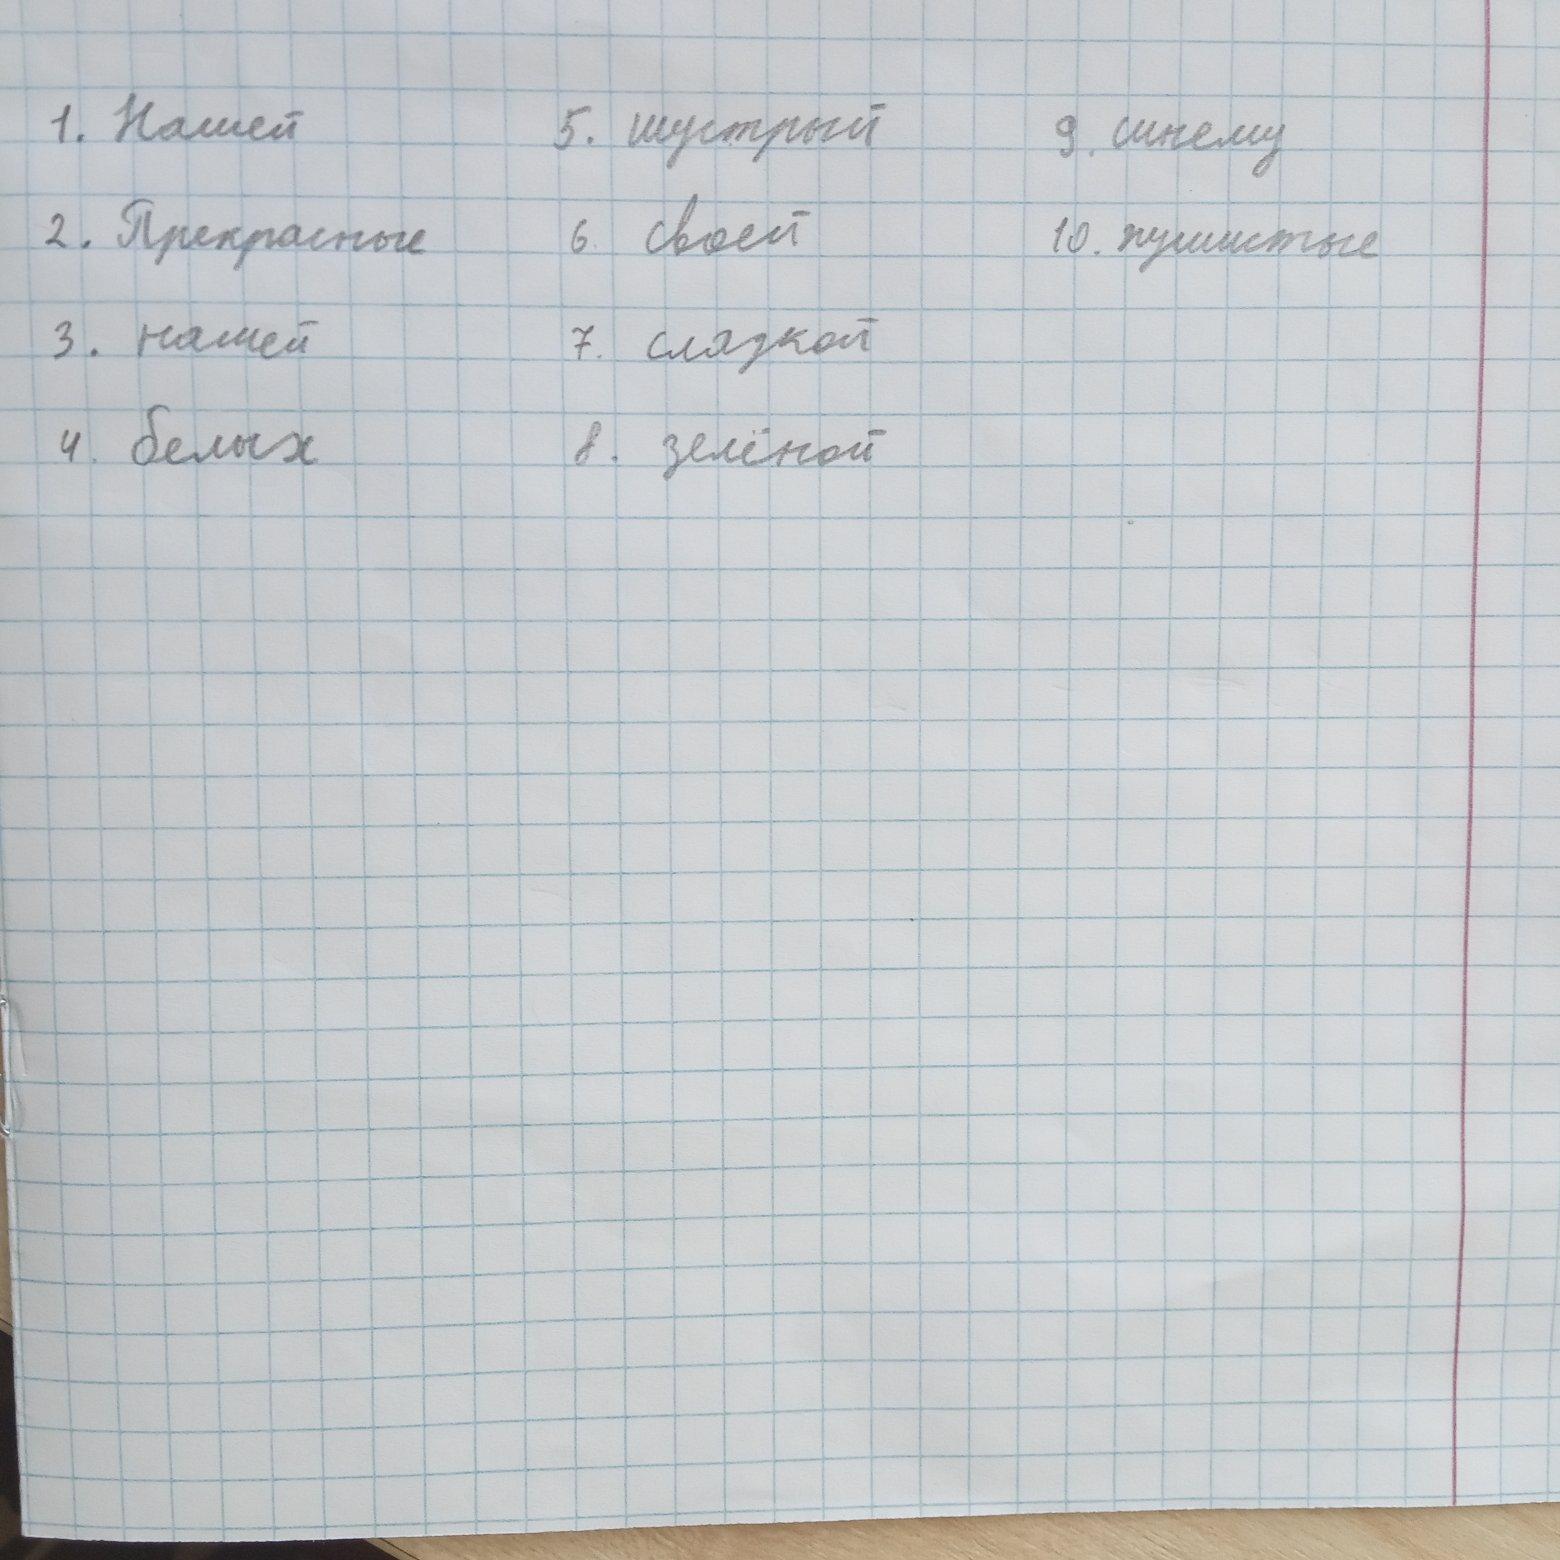 1. Нашей
2. Прекрасные
3. нашей
4. белых
5. шустрый
6. своей
7. сладкой
8. зелёной
9. синему
10. пушистые